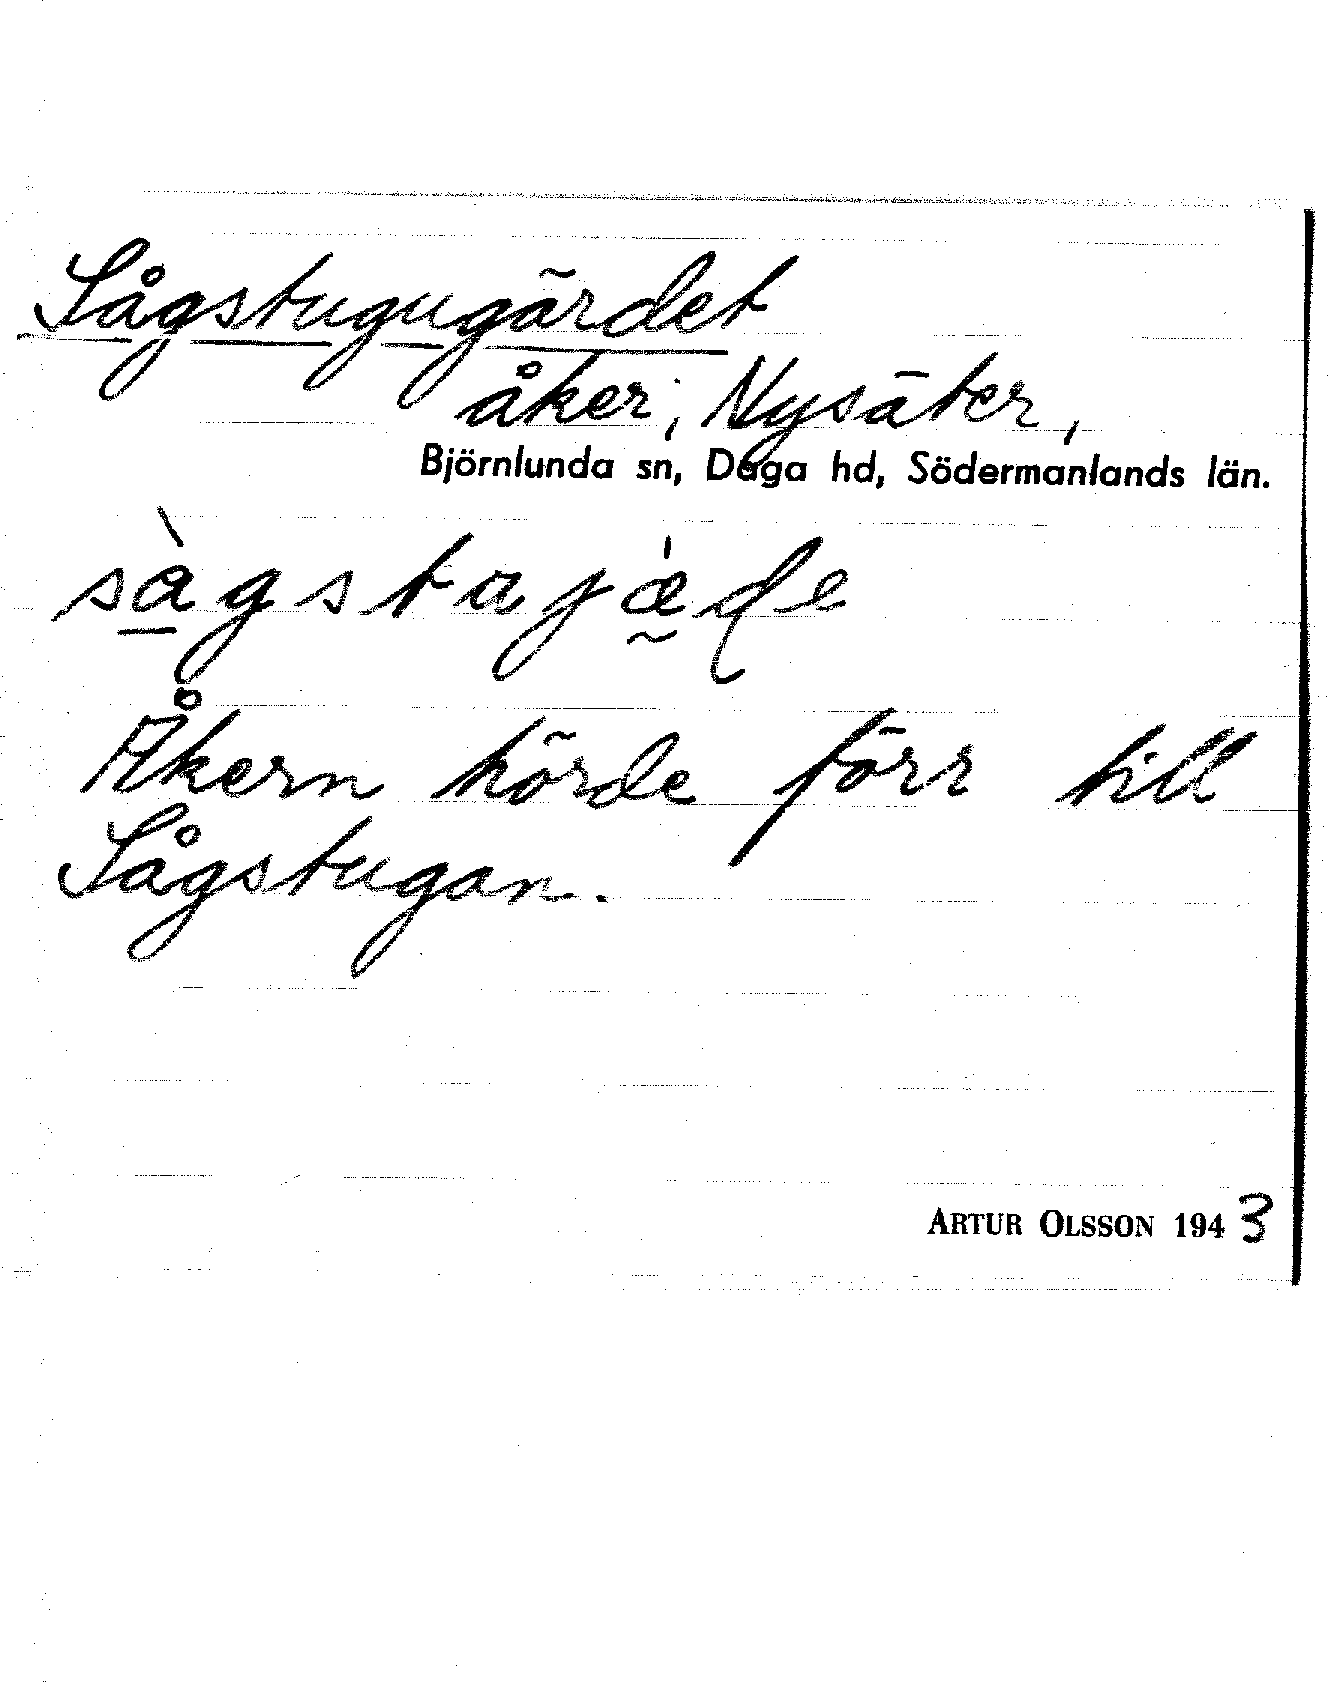 Sågstugugärdet
åker, Nysäter,
Björnlunda sn, Daga hd, Södermanlands län.
sàgstajæ̀de
Åkern hörde förr till
Sågstugan.
ARTUR OLSSON 1943